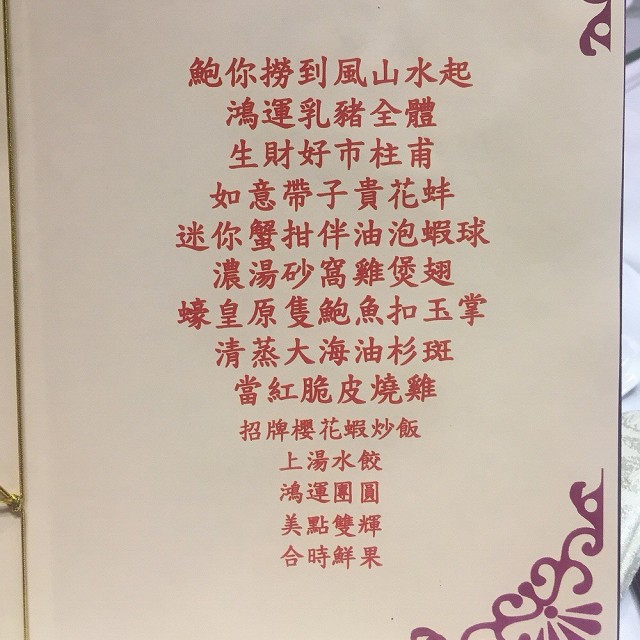 鮑你撈到風山水起
鴻運乳豬全體
生財好市柱甫
如意帶子貴花蚌
迷你蟹拑伴油泡蝦球
濃湯砂窩雞煲翅
蠔皇原隻鮑魚扣玉掌
清蒸大海油杉斑
當紅脆皮燒雞
招牌櫻花蝦炒飯
上湯水餃
鴻運團圓
美點雙輝
合時鮮果